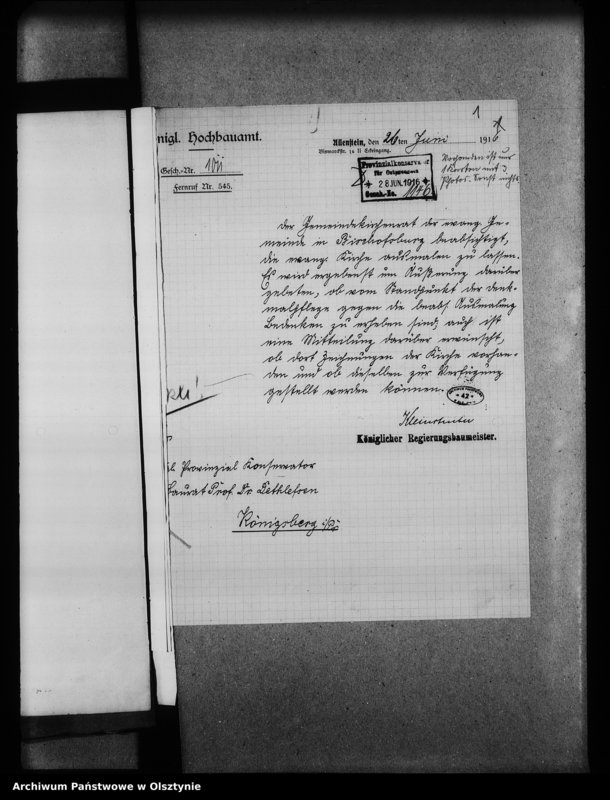 nigl. Hochbauamt.
Gesch.-Nr.
Fernruf Nr. 545.
1
Allenstein, den 26ten Juni 1916
Bismarckstr.
Provinzialkonservator
für Ostpreussen
28. JUN. 1916
Gesch.-No.
Vorhanden ist nur
1 Karton mit 3
Photos. Sonst nichts
Der Gemeindekirchenrat der evang. Ge-
meinde in Bischofsburg beabsichtigt,
die evang. Kirche ausmalen zu lassen.
Es wird ergebenst um Äußerung darüber
gebeten, ob vom Standpunkt der Denk-
malpflege gegen die beabs. Ausmalung
Bedenken zu erheben sind; auch ist
eine Mitteilung darüber erwünscht,
ob dort Zeichnungen der Kirche vorhan-
den und ob dieselben zur Verfügung
gestellt werden können.
42
Königlicher Regierungsbaumeister.
Provinzial Konservator
Baurat Prof. Dr. Dethlefsen
Königsberg i/Pr.
Archiwum Państwowe w Olsztynie